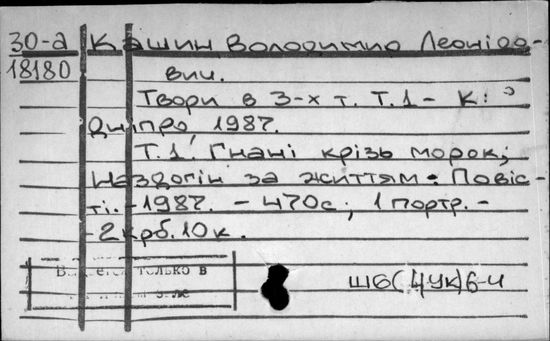 30-а Кашин Володимир Леонідо-
18180 вич.
Твори в 3-х т. Т.1 - К:
Дніпро, 1987.
Т.1. Гнані крізь морок;
Наздогін за життям. Повіс-
ті. - 1987. - 470с; 1 портр. -
- 2крб.10к.
только в
Ш6(4УК)6-4